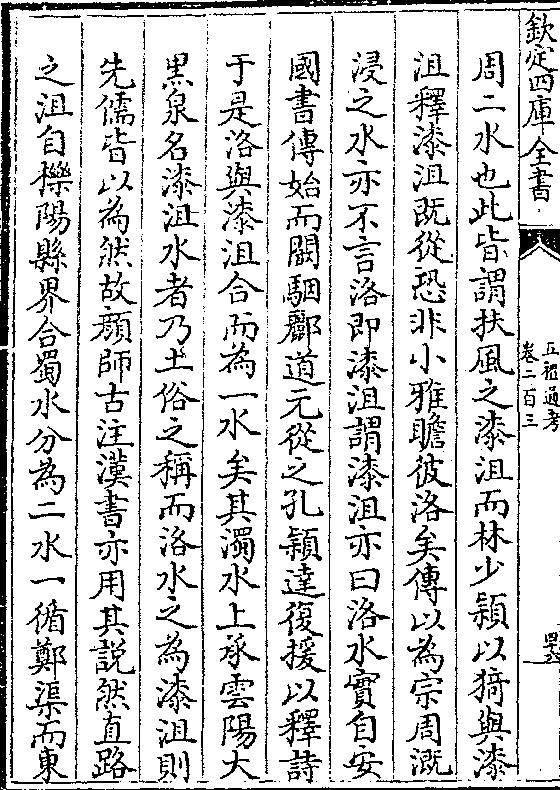 欽定四庫全書
五禮通考
卷二百三
周二水也此皆謂扶風之漆沮而林少潁以猗與漆
沮釋漆沮既從恐非小雅瞻彼洛矣傳以為宗周溉
浸之水亦不言洛即漆沮謂漆沮亦曰洛水實自安
國書傳始而闞駰酈道元從之孔穎達復援以釋詩
于是洛與漆沮合而為一水矣其濁水上承雲陽大
黒泉名漆沮水者乃土俗之稱而洛水之為漆沮則
先儒皆以為然故顔師古注漢書亦用其説然直路
之沮自櫟陽縣界合蜀水分為二水一循鄭渠而東